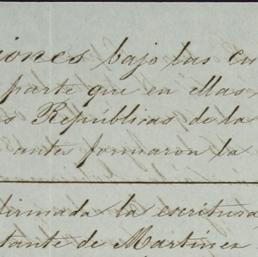 iones bajo las cu
parte que en ellas
s Repúblicas de la
antes formaron la
firmada la escritura
tante de Martinez